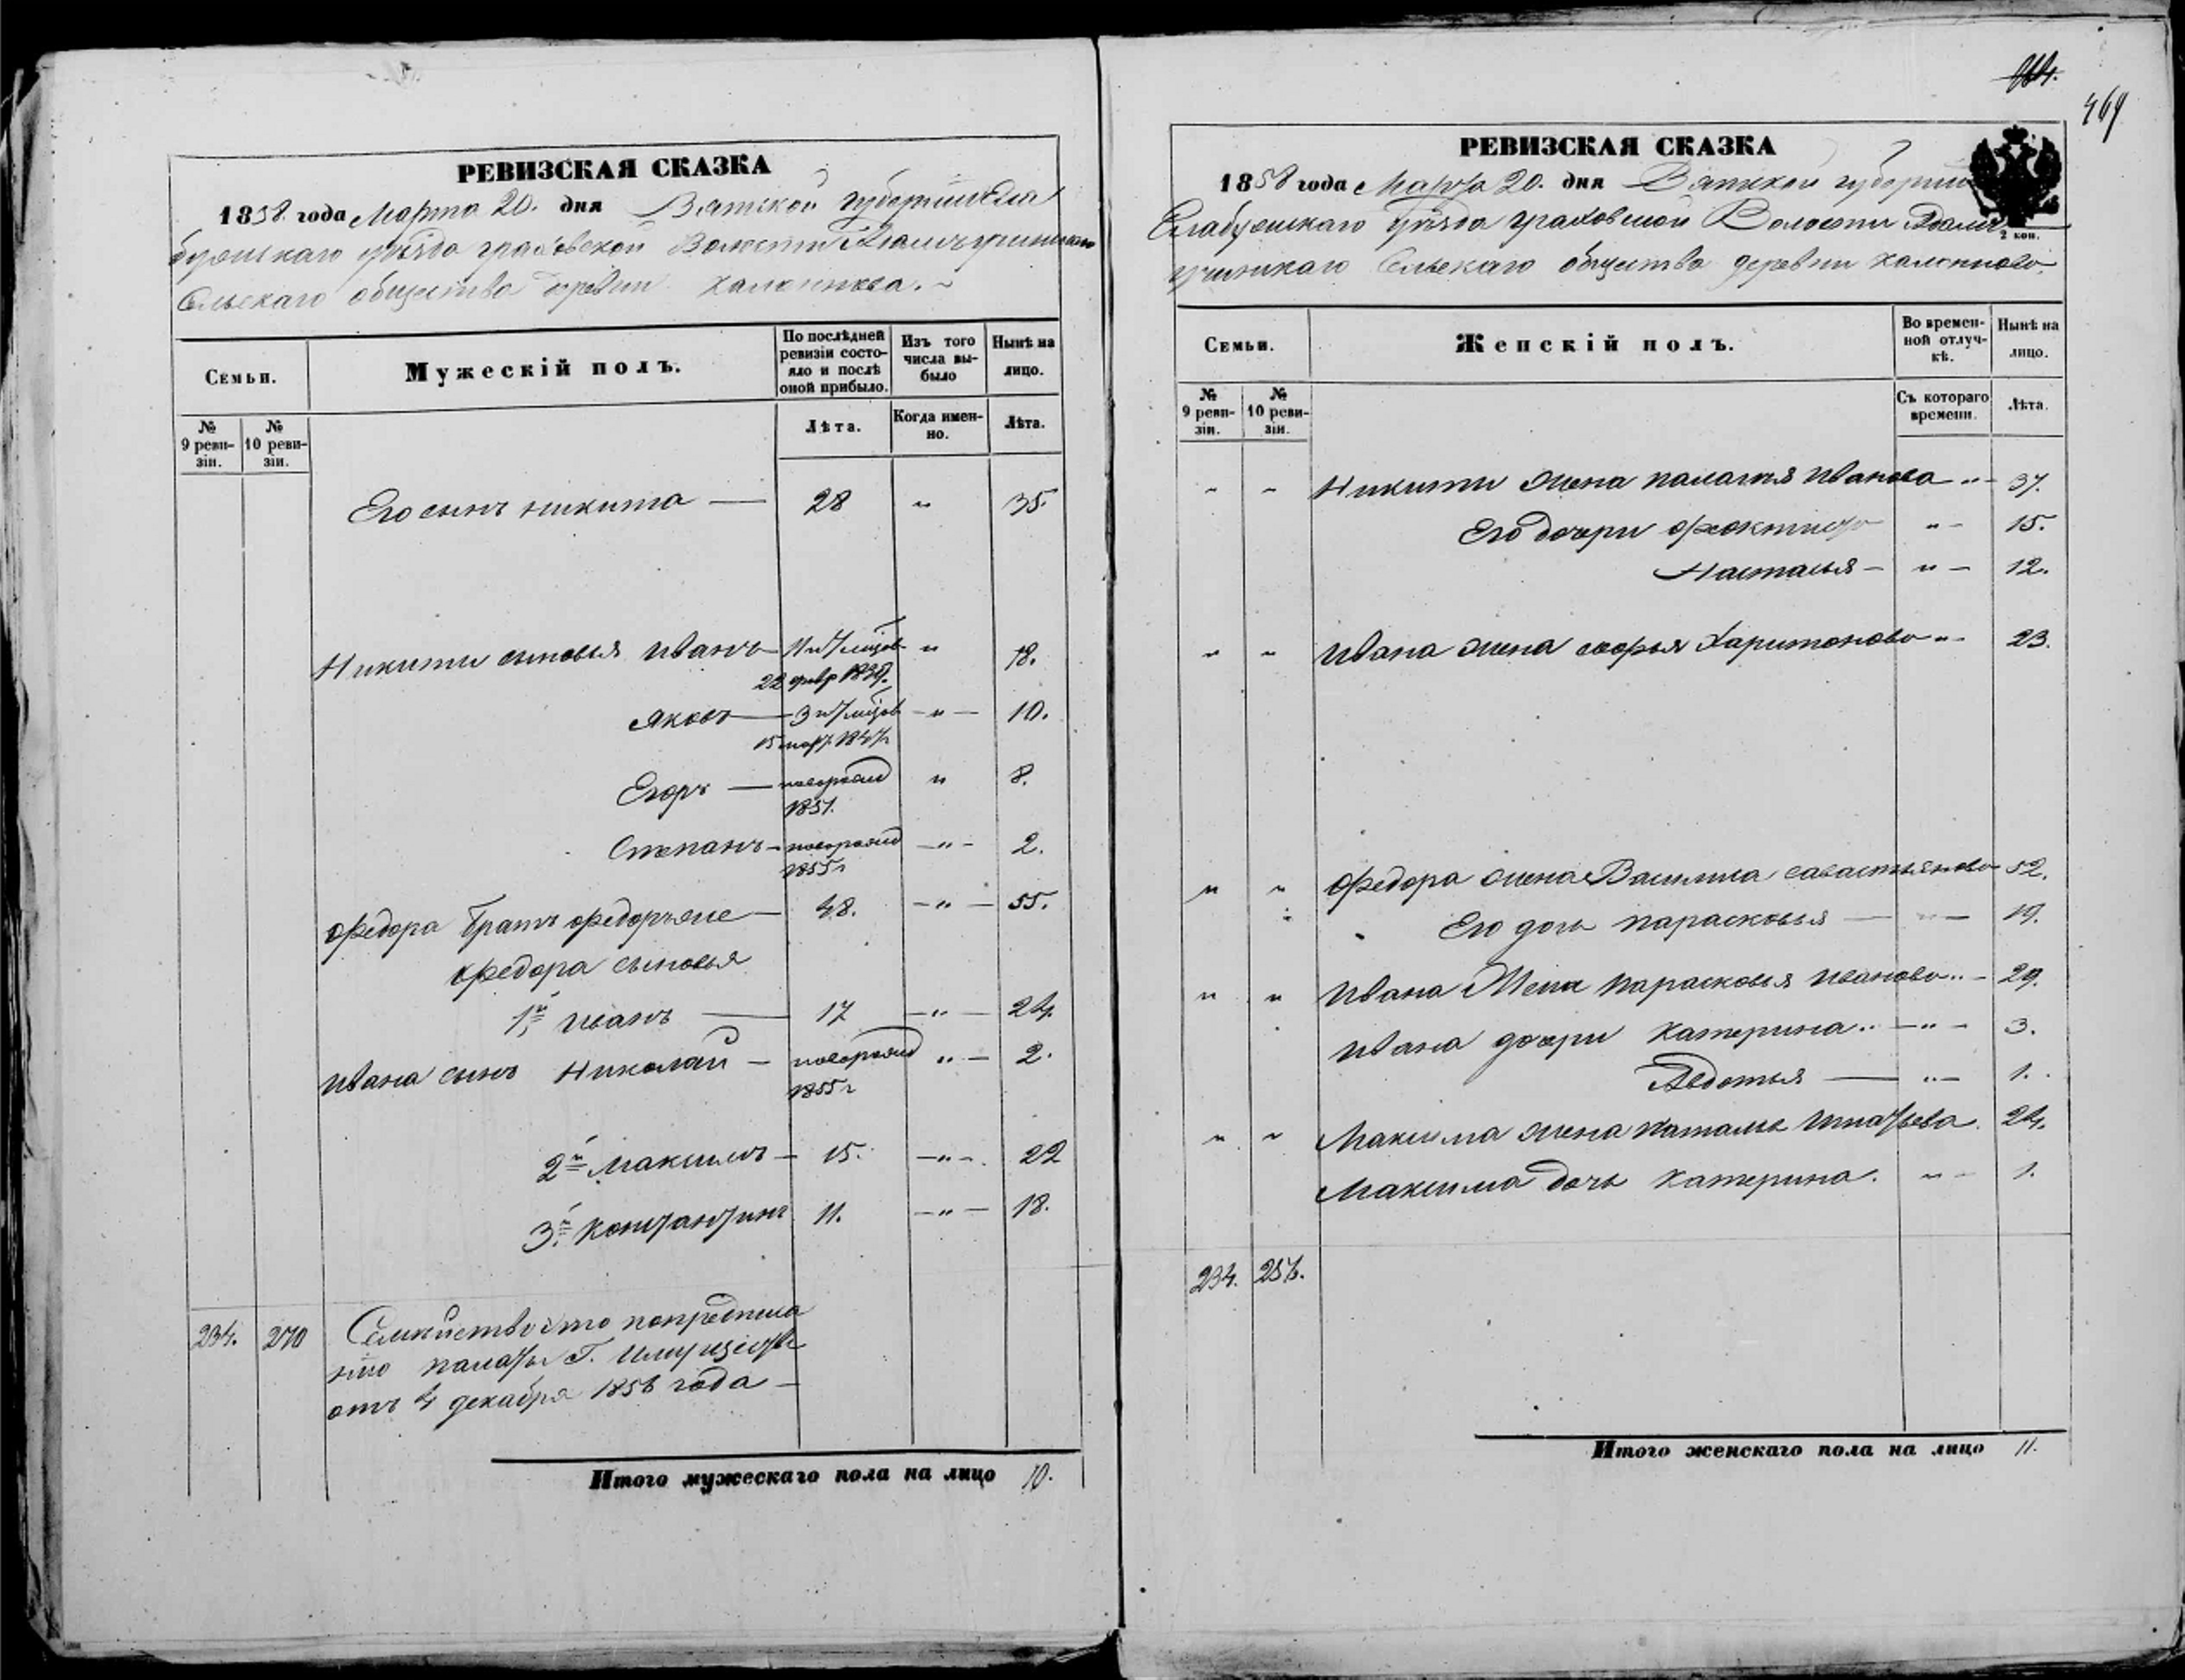 464.
469
РЕВИЗСКАЯ СКАЗКА
1858 года Марта 20. дня Вятской губернии Ела
бужскаго уѣзда граховской Волости
Сельскаго общества деревни
Семьи.
Мужескій полъ.
По послѣдней ревизіи состояло и послѣ оной прибыло.
Изъ того числа выбыло
Нынѣ на лицо.
№ 9 ревизіи.
№ 10 ревизіи.
Лѣта.
Когда именно.
Лѣта.
Его сынъ никита — 28 " 35.
Никиты сыновья иванъ 11 и 7 мѣцов " 18.
22 февр 1839.
яковъ — 3 и 7 мѣцов — " — 10.
15 мар. 1847г
Егоръ — послѣ рожд " 8.
1851.
Степанъ — после рожд — " — 2.
1855г
Федора братъ федоръ же — 48. — " — 55.
федора сыновья
1й иванъ — 17 — " — 24.
ивана сынъ Николай — после рожд " — 2.
1855г
2й максимъ — 15. — " — 22
3й константинъ 11. — " — 18.
234. 270 Семейство это по предписа
нію палаты Г. имуществ
отъ 4 декабря 1856 года —
Итого мужескаго пола на лицо 10.
РЕВИЗСКАЯ СКАЗКА
1858 года Марта 20. дня Вятской губерніи
Елабужскаго уѣзда граховской Волости
2 коп.
Сельскаго общества деревни
Семьи.
Женскій полъ.
Во временной отлучкѣ.
Нынѣ на лицо.
№ 9 ревизіи.
№ 10 ревизіи.
Съ котораго времени.
Лѣта.
" " Никиты жена палагія иванова " — 37.
Его дочери " — 15.
Настасья — " — 12.
" " ивана жена софья Харитонова " — 23.
" " Федора жена Василиса савастьянова 52.
Его дочь парасковья — " — 19.
" " ивана Жена парасковья иванова " — 29.
ивана дочери катерина " — " — 3.
Авдотья — " — 1.
" " Максима жена наталья игнатьева 24.
Максима дочь катерина. " — 1.
234. 256.
Итого женскаго пола на лицо 11.